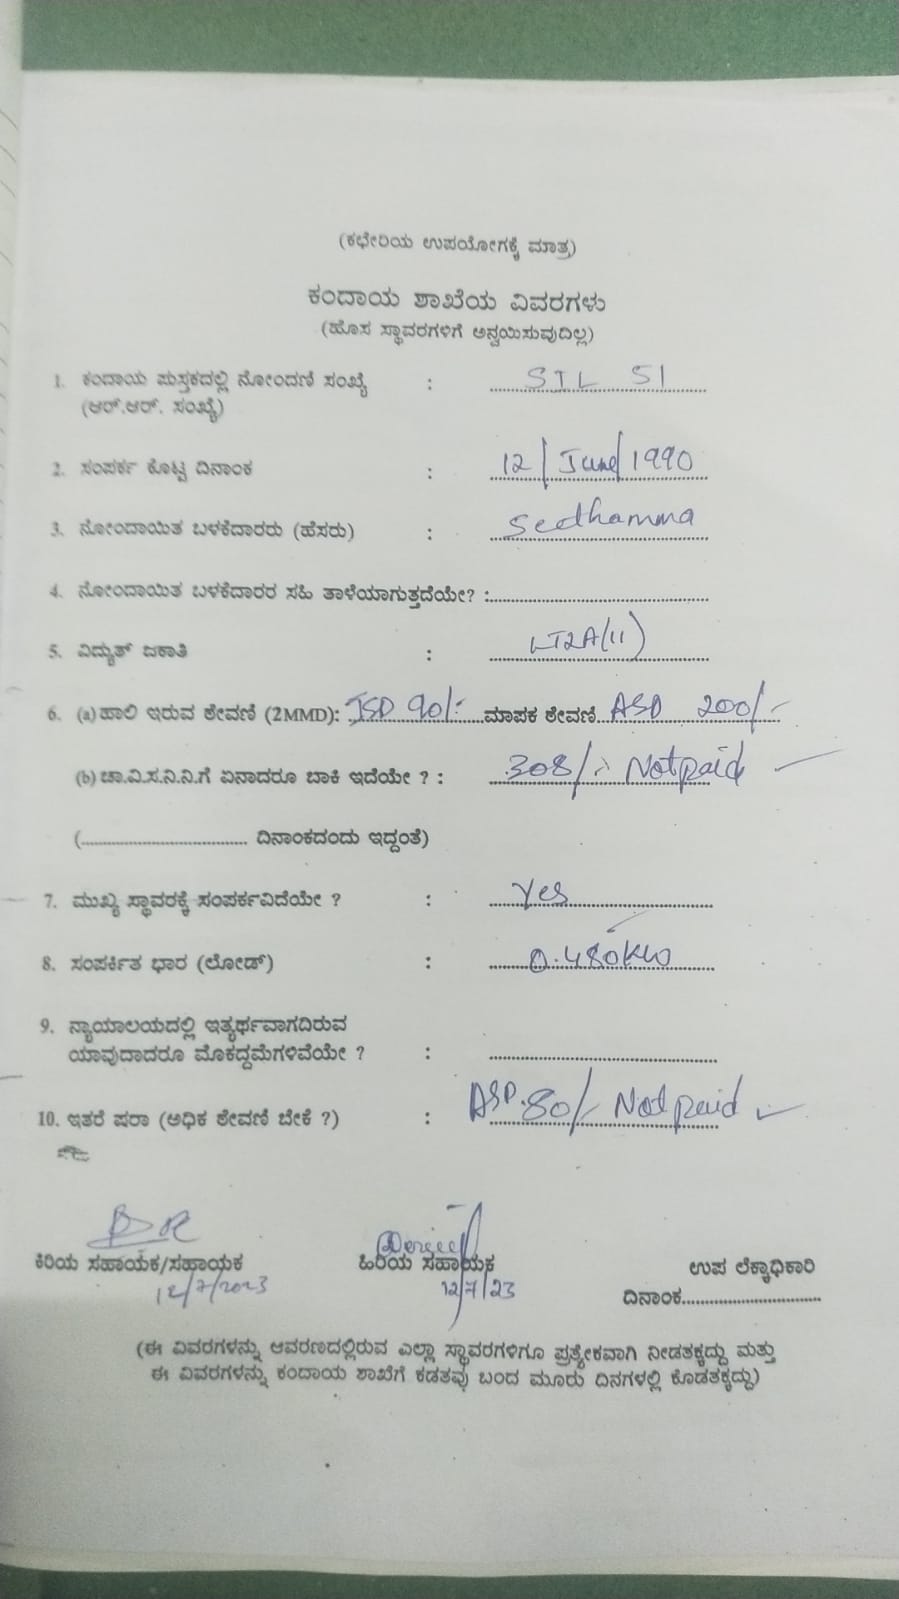 (ಕಛೇರಿಯ ಉಪಯೋಗಕ್ಕೆ ಮಾತ್ರ)
ಕಂದಾಯ ಶಾಖೆಯ ವಿವರಗಳು
(ಹೊಸ ಸ್ಥಾವರಗಳಿಗೆ ಅನ್ವಯಿಸುವುದಿಲ್ಲ)
1. ಕಂದಾಯ ಪುಸ್ತಕದಲ್ಲಿ ನೋಂದಣಿ ಸಂಖ್ಯೆ : STL 51
(ಆರ್.ಆರ್. ಸಂಖ್ಯೆ)
2. ಸಂಪರ್ಕ ಕೊಟ್ಟ ದಿನಾಂಕ : 12/June/1990
3. ನೋಂದಾಯಿತ ಬಳಕೆದಾರರು (ಹೆಸರು) : Seethamma
4. ನೋಂದಾಯಿತ ಬಳಕೆದಾರರ ಸಹಿ ತಾಳೆಯಾಗುತ್ತದೆಯೇ? :
5. ವಿದ್ಯುತ್ ಜಕಾತಿ : LT2A(11)
6. (a) ಹಾಲಿ ಇರುವ ಠೇವಣಿ (2MMD): ISD 90/- ಮಾಪಕ ಠೇವಣಿ ASD 200/-
(b) ಚಾ.ವಿ.ಸ.ನಿ.ನಿ.ಗೆ ಏನಾದರೂ ಬಾಕಿ ಇದೆಯೇ ? : 308/- Not paid
(.................................. ದಿನಾಂಕದಂದು ಇದ್ದಂತೆ)
7. ಮುಖ್ಯ ಸ್ಥಾವರಕ್ಕೆ ಸಂಪರ್ಕವಿದೆಯೇ ? : Yes
8. ಸಂಪರ್ಕಿತ ಭಾರ (ಲೋಡ್) : 0.480KW
9. ನ್ಯಾಯಾಲಯದಲ್ಲಿ ಇತ್ಯರ್ಥವಾಗದಿರುವ
ಯಾವುದಾದರೂ ಮೊಕದ್ದಮೆಗಳಿವೆಯೇ ? :
10. ಇತರೆ ಷರಾ (ಅಧಿಕ ಠೇವಣಿ ಬೇಕೆ ?) : ASD.80/- Not paid
ಕಿರಿಯ ಸಹಾಯಕ/ಸಹಾಯಕ ಹಿರಿಯ ಸಹಾಯಕ ಉಪ ಲೆಕ್ಕಾಧಿಕಾರಿ
12/7/2023 12/7/23 ದಿನಾಂಕ..............................
(ಈ ವಿವರಗಳನ್ನು ಆವರಣದಲ್ಲಿರುವ ಎಲ್ಲಾ ಸ್ಥಾವರಗಳಿಗೂ ಪ್ರತ್ಯೇಕವಾಗಿ ನೀಡತಕ್ಕದ್ದು ಮತ್ತು
ಈ ವಿವರಗಳನ್ನು ಕಂದಾಯ ಶಾಖೆಗೆ ಕಡತವು ಬಂದ ಮೂರು ದಿನಗಳಲ್ಲಿ ಕೊಡತಕ್ಕದ್ದು)